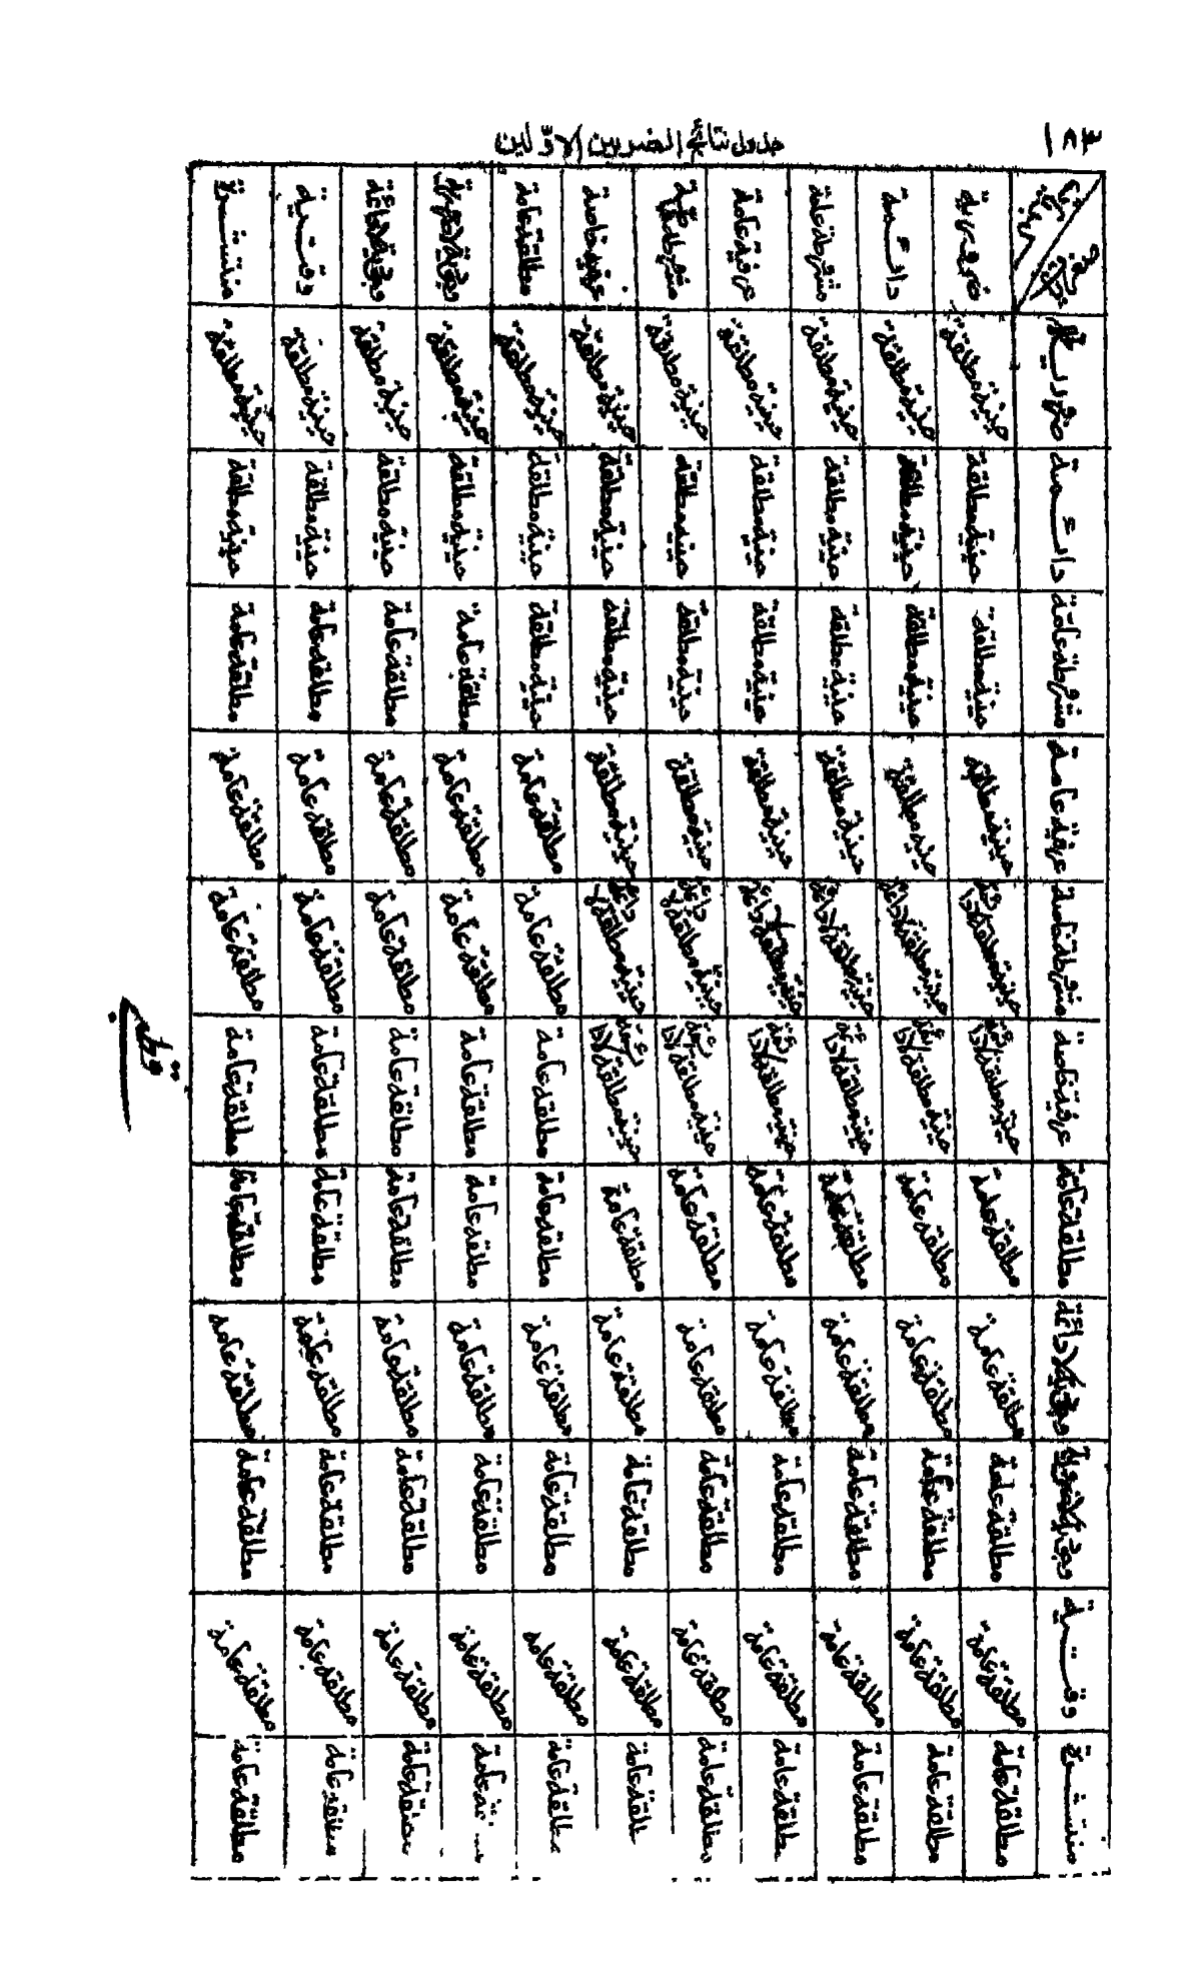 ١٢٤
جدول نتائج الضربين الاوّلين
ضرورية دائمة مشروطة عامة عرفية عامة مشروطة خاصة عرفية خاصة مطلقة عامة وجودية لاضرورية وجودية لادائمة وقتية منتشرة
ضرورية حينية مطلقة حينية مطلقة حينية مطلقة حينية مطلقة حينية مطلقة حينية مطلقة حينية مطلقة حينية مطلقة حينية مطلقة حينية مطلقة حينية مطلقة
دائمة حينية مطلقة حينية مطلقة حينية مطلقة حينية مطلقة حينية مطلقة حينية مطلقة حينية مطلقة حينية مطلقة حينية مطلقة حينية مطلقة حينية مطلقة
مشروطة عامة حينية مطلقة حينية مطلقة حينية مطلقة حينية مطلقة حينية مطلقة حينية مطلقة حينية مطلقة مطلقة عامة مطلقة عامة مطلقة عامة مطلقة عامة
عرفية عامة حينية مطلقة حينية مطلقة حينية مطلقة حينية مطلقة حينية مطلقة حينية مطلقة مطلقة عامة مطلقة عامة مطلقة عامة مطلقة عامة مطلقة عامة
مشروطة خاصة حينية مطلقة لادائمة حينية مطلقة لادائمة حينية مطلقة لادائمة حينية مطلقة لادائمة حينية مطلقة لادائمة حينية مطلقة لادائمة مطلقة عامة مطلقة عامة مطلقة عامة مطلقة عامة مطلقة عامة
عرفية خاصة حينية مطلقة لادائمة حينية مطلقة لادائمة حينية مطلقة لادائمة حينية مطلقة لادائمة حينية مطلقة لادائمة حينية مطلقة لادائمة مطلقة عامة مطلقة عامة مطلقة عامة مطلقة عامة مطلقة عامة
مطلقة عامة مطلقة عامة مطلقة عامة مطلقة عامة مطلقة عامة مطلقة عامة مطلقة عامة مطلقة عامة مطلقة عامة مطلقة عامة مطلقة عامة مطلقة عامة
وجودية لادائمة مطلقة عامة مطلقة عامة مطلقة عامة مطلقة عامة مطلقة عامة مطلقة عامة مطلقة عامة مطلقة عامة مطلقة عامة مطلقة عامة مطلقة عامة
وجودية لاضرورية مطلقة عامة مطلقة عامة مطلقة عامة مطلقة عامة مطلقة عامة مطلقة عامة مطلقة عامة مطلقة عامة مطلقة عامة مطلقة عامة مطلقة عامة
وقتية مطلقة عامة مطلقة عامة مطلقة عامة مطلقة عامة مطلقة عامة مطلقة عامة مطلقة عامة مطلقة عامة مطلقة عامة مطلقة عامة مطلقة عامة
منتشرة مطلقة عامة مطلقة عامة مطلقة عامة مطلقة عامة مطلقة عامة مطلقة عامة مطلقة عامة مطلقة عامة مطلقة عامة مطلقة عامة مطلقة عامة